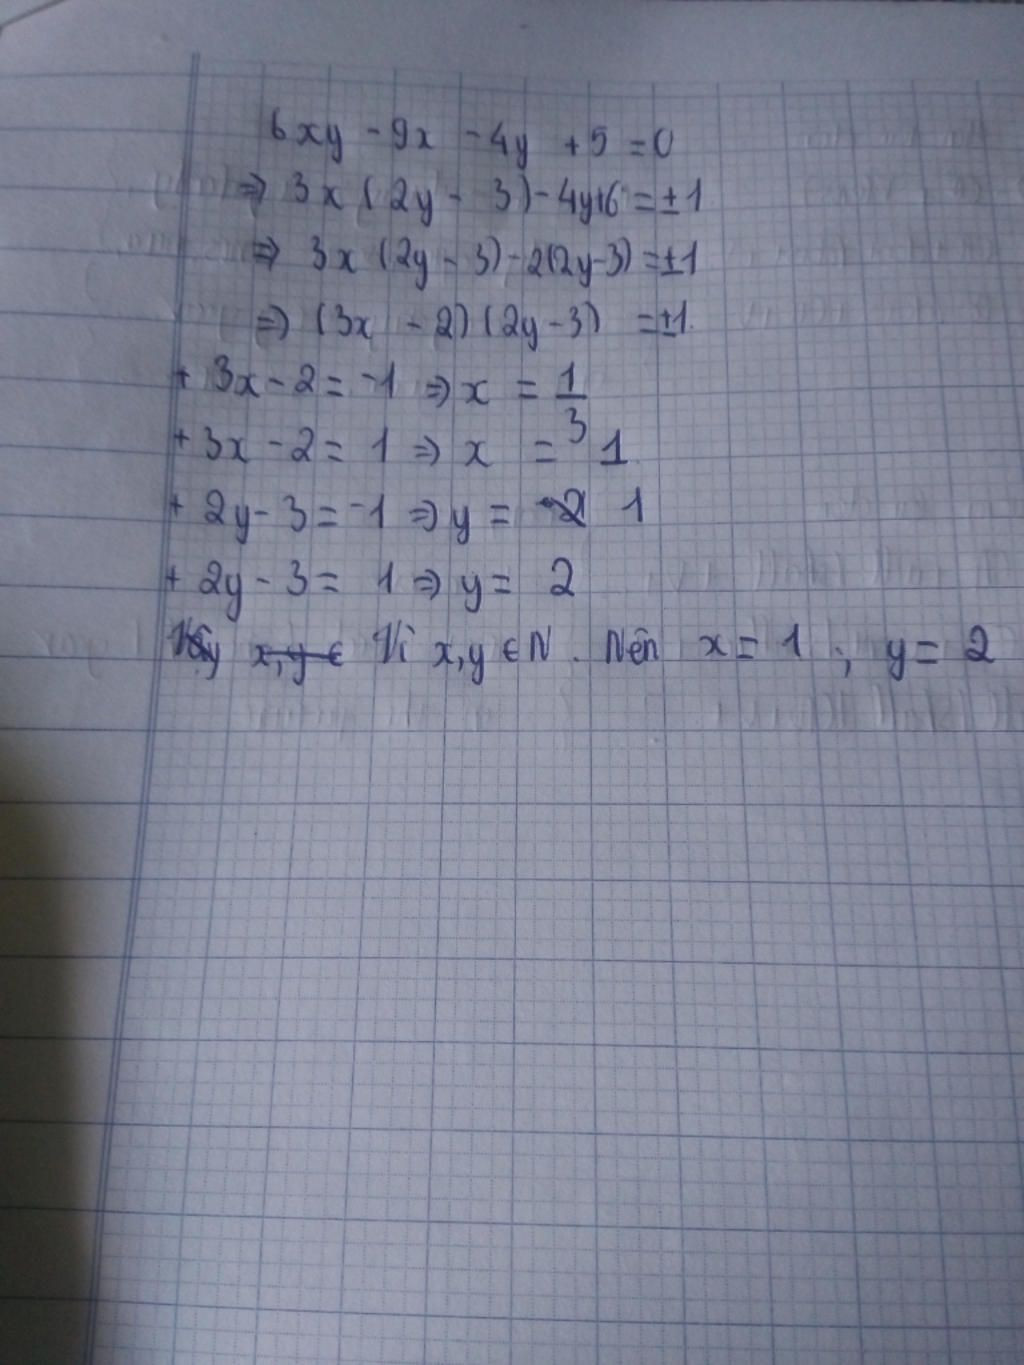 6xy - 9x - 4y + 5 = 0
⇒ 3x (2y - 3) - 4y+6 = ±1
⇒ 3x (2y - 3) - 2(2y-3) = ±1
⇒ (3x - 2) (2y-3) = ±1
+ 3x - 2 = -1 ⇒ x = 1/3
+ 3x - 2 = 1 ⇒ x = 1
+ 2y - 3 = -1 ⇒ y = 1
+ 2y - 3 = 1 ⇒ y = 2
Vậy x,y ∈ Vì x,y ∈ N. Nên x = 1 ; y = 2